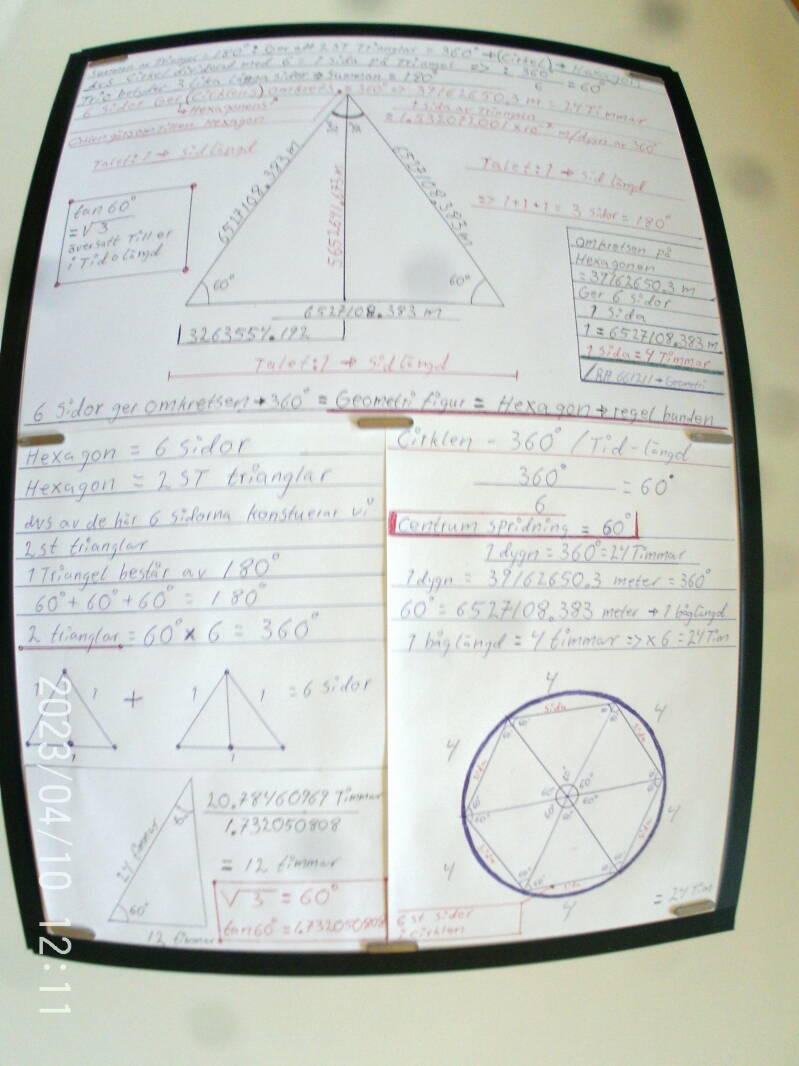 Summan av Triangel = 180° : Ger att 2 ST Trianglar = 360° → (Cirkel) → Hexagon
dvs Cirkel dividerad med 6 = 1 sida på Triangel => 360° / 6 = 60°
3 lika långa sidor → Summan = 180°
6 Sidor Ger (Cirklens) omkrets = 360° => 39162650.3 m = 24 Timmar
↳ Hexagonens
1 sida av Triangeln
Hexagon
m/dygn av 360°
Talet: 1 → Sidlängd
Talet: 1 → Sidlängd
=> 1+1+1 = 3 sidor = 180°
30° 30°
6527108.383 m
5652641.673 m
6527108.383 m
tan 60°
= √3
översatt Till er
i Tid o längd
60°
60°
6527108.383 m
3263554.192
Talet: 1 → Sidlängd
omkretsen på
Hexagonen
= 39162650.3 m
Ger 6 sidor
1 Sida
1 = 6527108.383 m
1 Sida = 4 Timmar
6 Sidor ger omkretsen → 360° = Geometri figur = Hexagon → regel bunden
Hexagon = 6 sidor
Hexagon = 2 ST trianglar
dvs av de här 6 sidorna konstuerar vi
2 st trianglar
1 Triangel består av 180°
60° + 60° + 60° = 180°
2 trianglar = 60° × 6 = 360°
1 1 + 1 1 = 6 sidor
1 1
24 timmar
60°
12 timmar
20.78460969 Timmar
1.732050808
= 12 timmar
√3 = 60°
tan 60° = 1.732050808
Cirklen - 360° / Tid-längd
360° / 6 = 60°
Centrum spridning = 60°
1 dygn = 360° = 24 Timmar
1 dygn = 39162650.3 meter = 360°
60° = 6527108.383 meter → 1 båglängd
1 båglängd = 4 timmar => × 6 = 24 Tim
4
4 4
sida
sida sida
60° 60°
60° 60°
4 4
sida sida
sida
4
= 24 Tim
6 st sidor
i cirklen
2023/04/10 12:11